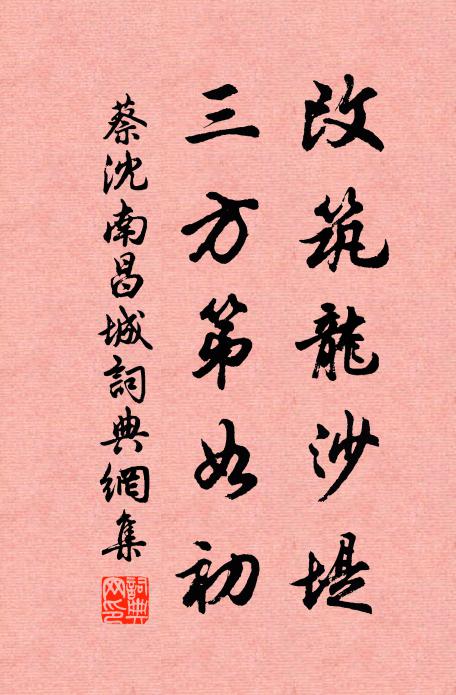 改筑龍沙堤
三方第如初
蔡沈南昌城詞典網集
詞典
网印